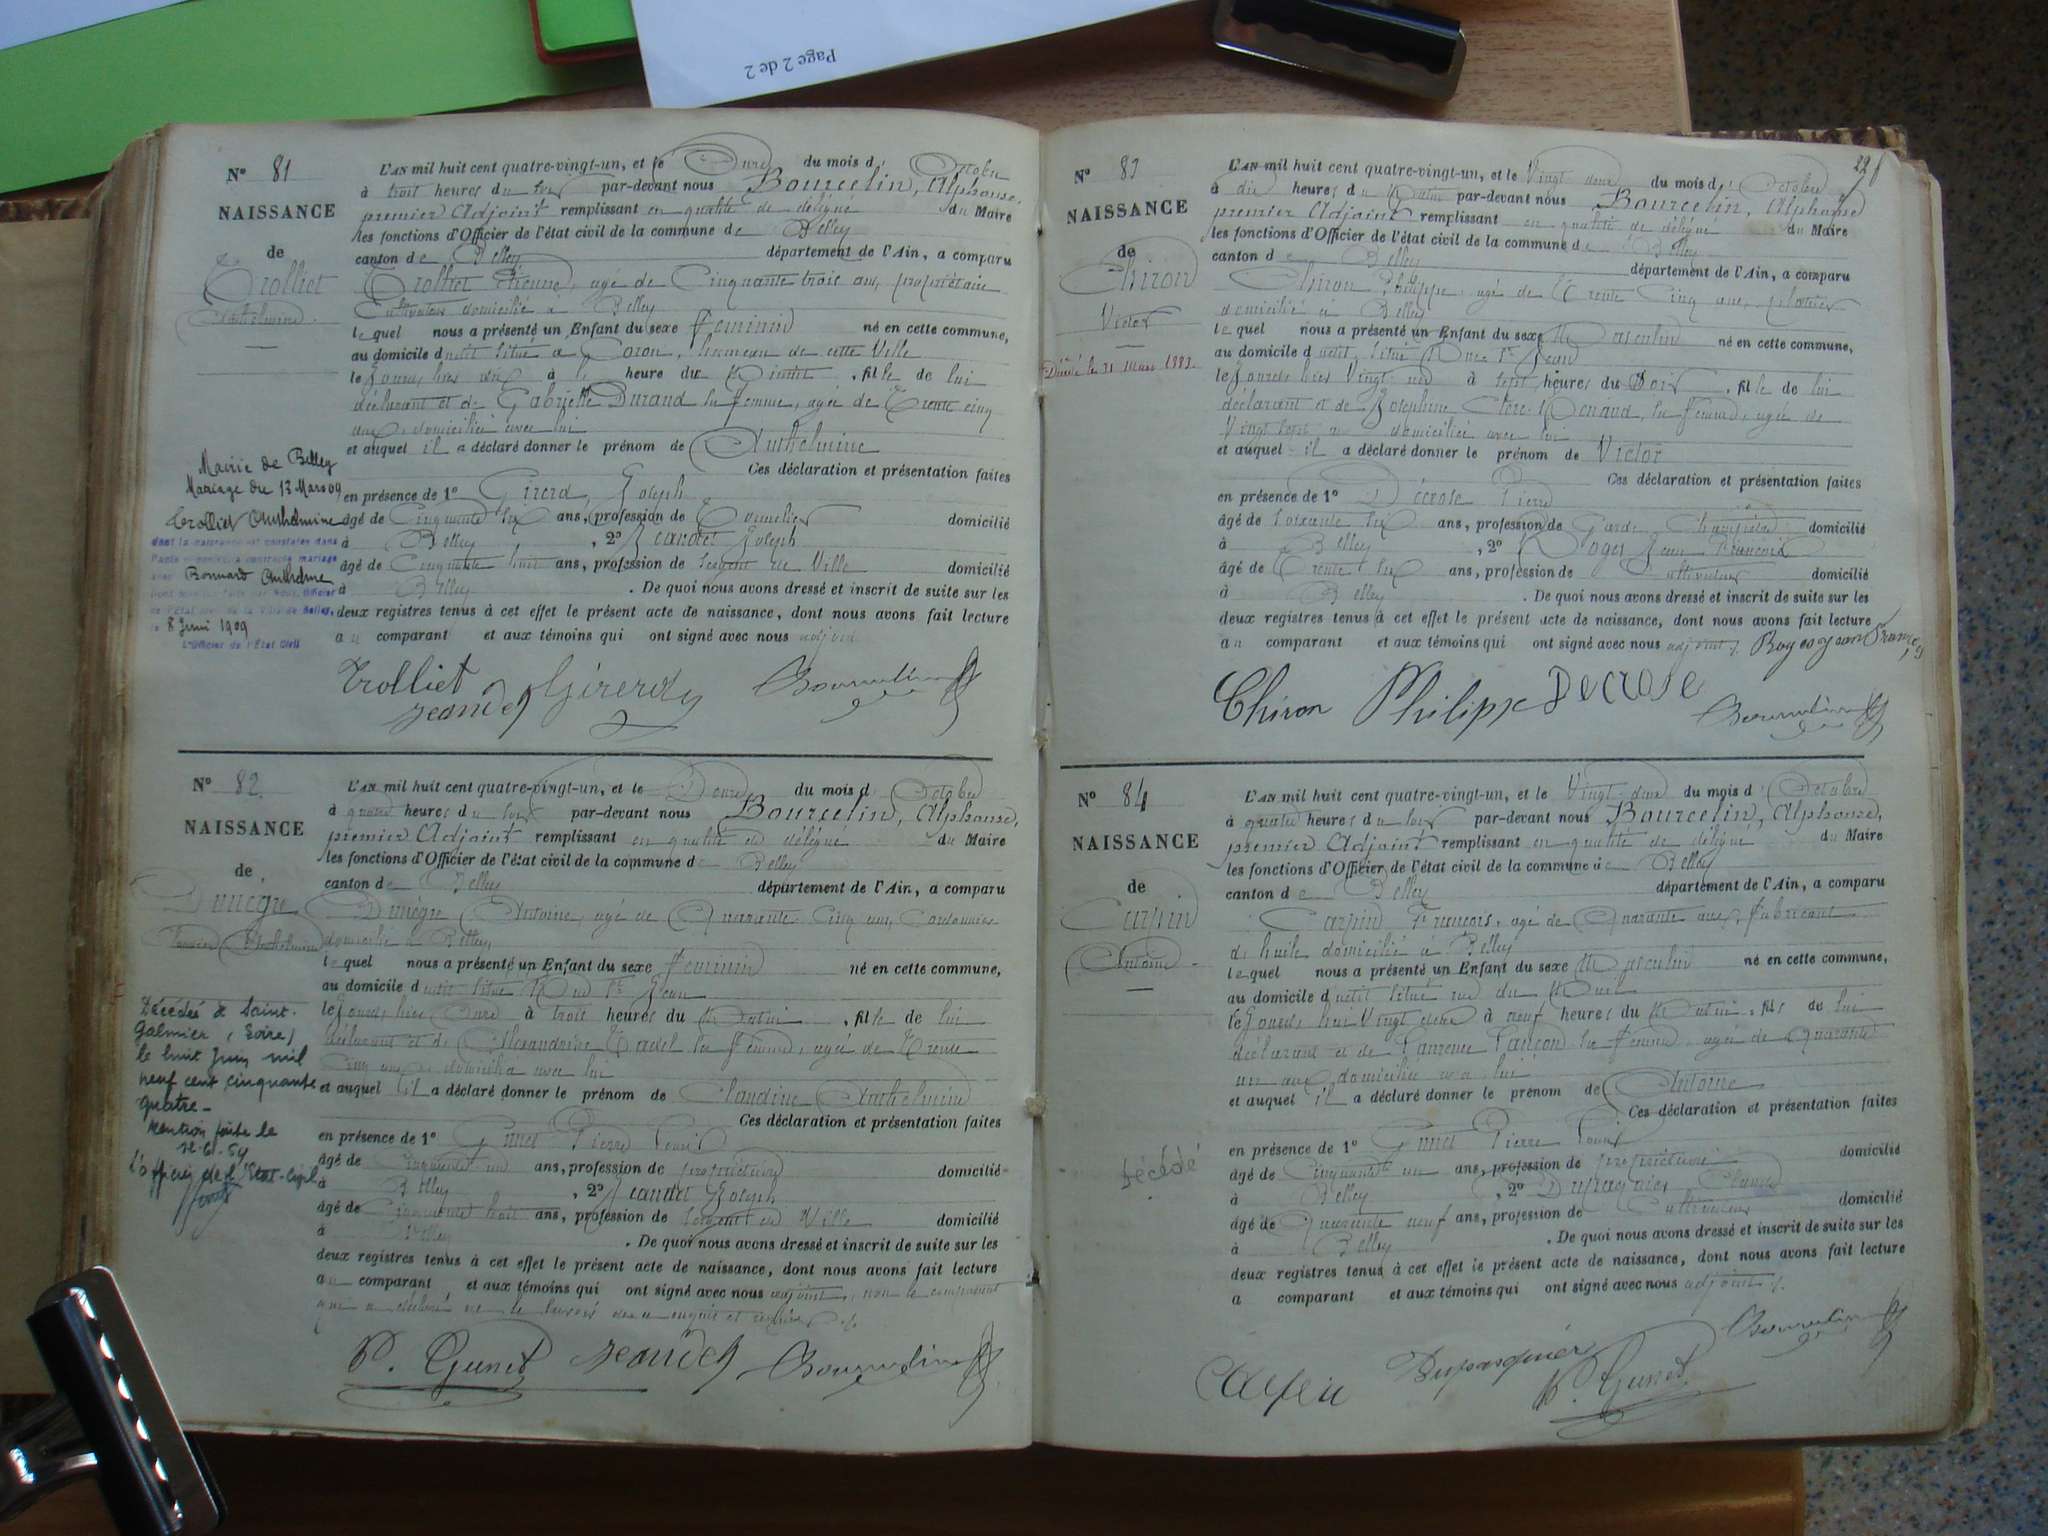 Page 2 de 2
N° 81
NAISSANCE
de
Trolliet
Anthelmine.
Mairie de Belley
Mariage du 13 Mars 09
Trolliet Anthelmine
dont la naissance est constatée dans
l'acte a contracté mariage
avec Bonnard Anthelme
de l'Etat Civil de la Ville de Belley,
le 8 Juin 1909
L'Officier de l'Etat Civil
L'AN mil huit cent quatre-vingt-un, et le du mois d' Octobre
à trois heures du soir par-devant nous Bourcelin, Alphonse,
premier Adjoint remplissant en qualité de délégué du Maire
les fonctions d'Officier de l'état civil de la commune de Belley
canton de Belley département de l'Ain, a comparu
Trolliet Etienne, agé de Cinquante trois ans, propriétaire
Cultivateur domicilié à Belley
lequel nous a présenté un Enfant du sexe Feminin né en cette commune,
au domicile dudit situé à Coron, hameau de cette Ville
le jourd'hier dix à heure du , fille de lui
déclarant et de Gabrielle Durand sa femme, agée de Trente cinq
ans, domiciliée avec lui
et auquel il a déclaré donner le prénom de Anthelmine
Ces déclaration et présentation faites
en présence de 1° Girerd, Joseph
âgé de Cinquante six ans, profession de Tonnelier domicilié
à Belley, 2° Jeandet Joseph
âgé de Cinquante huit ans, profession de Sergent de Ville domicilié
à Belley. De quoi nous avons dressé et inscrit de suite sur les
deux registres tenus à cet effet le présent acte de naissance, dont nous avons fait lecture
au comparant et aux témoins qui ont signé avec nous adjoint
Trolliet Jeandet Girerd Bourcelin
N° 82
NAISSANCE
de
Dunègre
Anthelmine
Décédée à Saint-
Galmier (Loire)
le huit Juin mil
neuf cent cinquante
quatre -
Mention faite le
12.6.54
L'officier de l'Etat-Civil
L'AN mil huit cent quatre-vingt-un, et le Douze du mois d' Octobre
à quatre heures du soir par-devant nous Bourcelin, Alphonse,
premier Adjoint remplissant en qualité de délégué du Maire
les fonctions d'Officier de l'état civil de la commune de Belley
canton de Belley département de l'Ain, a comparu
Antoine, agé de Quarante Cinq ans, Cordonnier
domicilié à Belley
lequel nous a présenté un Enfant du sexe Feminin né en cette commune,
au domicile dudit situé Rue St Jean
le jourd'hier Onze à trois heures du Matin, fille de lui
déclarant et de Alexandrine sa femme, agée de Trente
Cinq ans, domiciliée avec lui
et auquel il a déclaré donner le prénom de Claudine Anthelmine
Ces déclaration et présentation faites
en présence de 1° Gunet Pierre Louis
âgé de Cinquante un ans, profession de propriétaire domicilié
à Belley, 2° Jeandet Joseph
âgé de Cinquante huit ans, profession de Sergent de Ville domicilié
à Belley. De quoi nous avons dressé et inscrit de suite sur les
deux registres tenus à cet effet le présent acte de naissance, dont nous avons fait lecture
au comparant et aux témoins qui ont signé avec nous adjoint, non le comparant
qui a déclaré ne le savoir de ce enquis et requis
P. Gunet Jeandet Bourcelin
N° 83
NAISSANCE
de
Chiron
Victor
Décédé le 31 Mars 1883.
L'AN mil huit cent quatre-vingt-un, et le Vingt deux du mois d' Octobre
à dix heures du Matin par-devant nous Bourcelin, Alphonse
premier Adjoint remplissant en qualité de délégué du Maire
les fonctions d'Officier de l'état civil de la commune de Belley
canton de Belley département de l'Ain, a comparu
Chiron Philippe, agé de Trente Cinq ans, plâtrier
domicilié à Belley
lequel nous a présenté un Enfant du sexe Masculin né en cette commune,
au domicile dudit, situé Rue St Jean
le jourd'hier Vingt un à sept heures du Soir, fils de lui
déclarant et de Joséphine Renaud, sa femme, agée de
Vingt sept ans domiciliée avec lui
et auquel il a déclaré donner le prénom de Victor
Ces déclaration et présentation faites
en présence de 1° Décrose Pierre
âgé de soixante six ans, profession de Garde Champêtre domicilié
à Belley, 2° Roger Jean François
âgé de Trente six ans, profession de Cultivateur domicilié
à Belley. De quoi nous avons dressé et inscrit de suite sur les
deux registres tenus à cet effet le présent acte de naissance, dont nous avons fait lecture
au comparant et aux témoins qui ont signé avec nous adjoint
Chiron Philippe Decrose Bourcelin
N° 84
NAISSANCE
de
Carpin
Antoine.
décédé
L'AN mil huit cent quatre-vingt-un, et le Vingt-deux du mois d' Octobre
à quatre heures du soir par-devant nous Bourcelin, Alphonse,
premier Adjoint remplissant en qualité de délégué du Maire
les fonctions d'Officier de l'état civil de la commune de Belley
canton de Belley département de l'Ain, a comparu
Carpin François, agé de Quarante ans, Fabricant
de huile domicilié à Belley
lequel nous a présenté un Enfant du sexe Masculin né en cette commune,
au domicile dudit situé rue du
le jourd'hui Vingt deux à neuf heures du Matin, fils de lui
déclarant et de Laurence sa femme, agée de Quarante
un ans, domiciliée avec lui
et auquel il a déclaré donner le prénom de Antoine
Ces déclaration et présentation faites
en présence de 1° Gunet Pierre Louis
âgé de Cinquante un ans, profession de propriétaire domicilié
à Belley, 2° Dupasquier, Claude
âgé de Quarante neuf ans, profession de Cultivateur domicilié
à Belley. De quoi nous avons dressé et inscrit de suite sur les
deux registres tenus à cet effet le présent acte de naissance, dont nous avons fait lecture
a comparant et aux témoins qui ont signé avec nous adjoint
Carpin Dupasquier P. Gunet Bourcelin